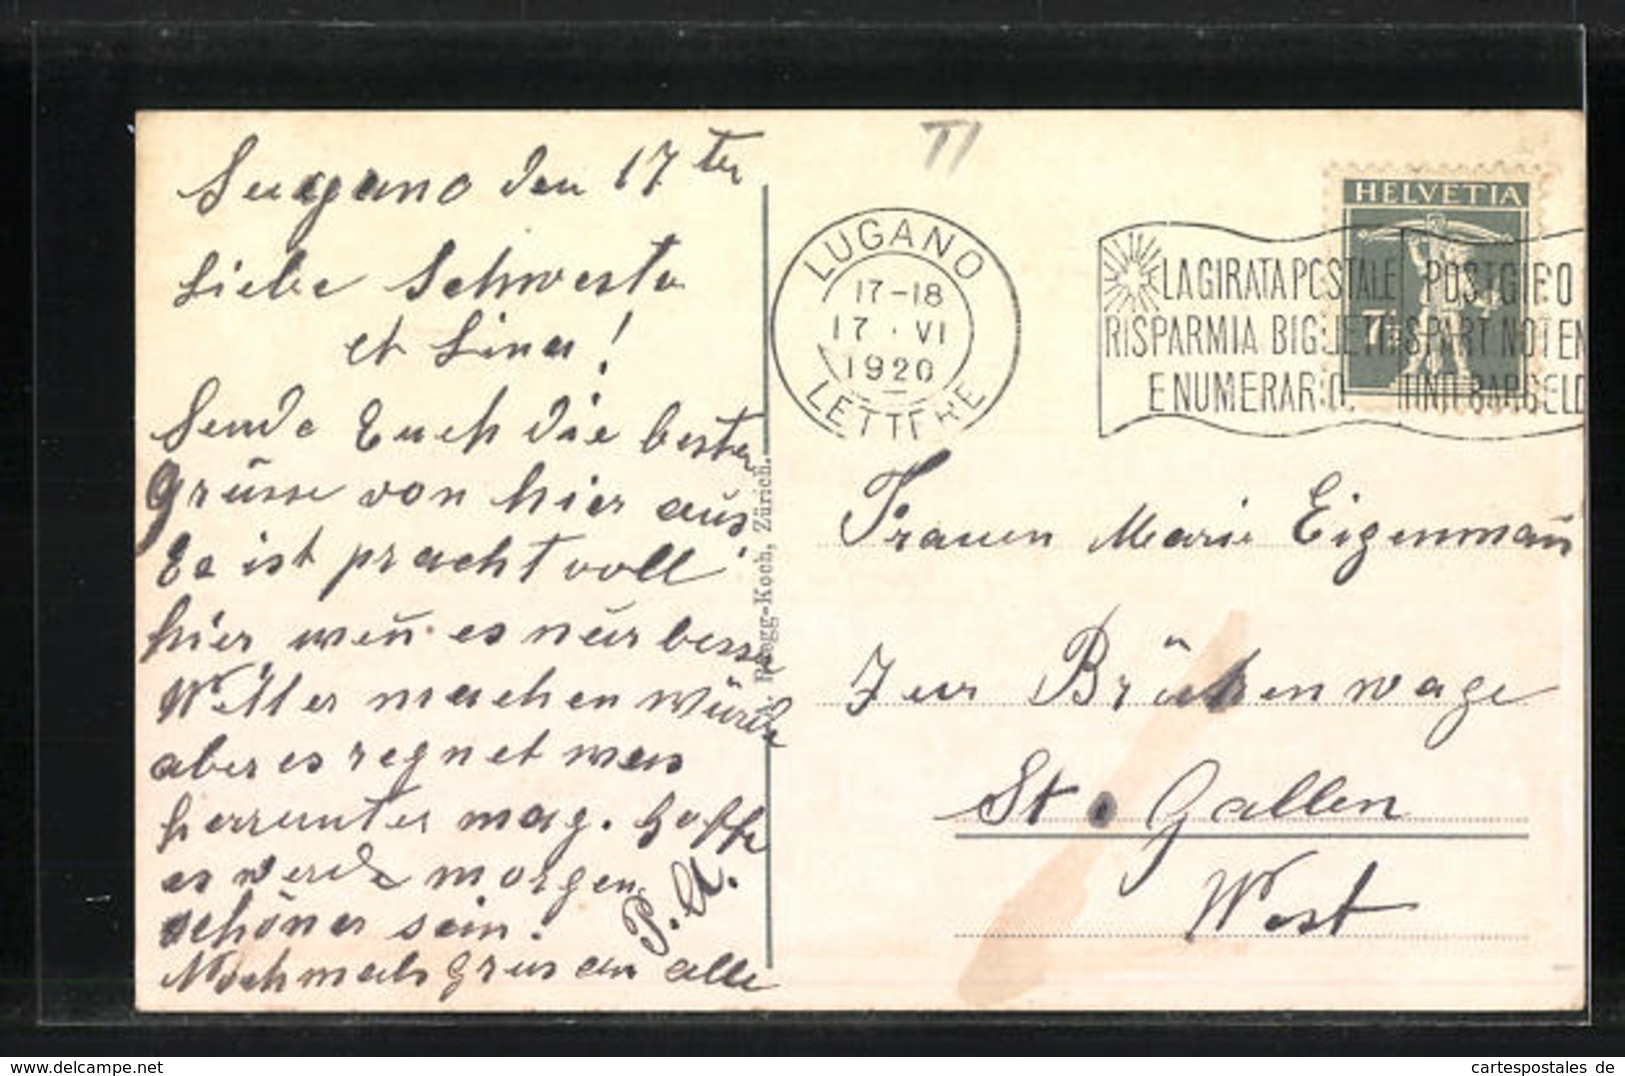 Lugano den 17ter
Liebe Schwester
et Lina!
Sende Euch die besten
Grüsse von hier aus,
Es ist prachtvoll
hier wen̄ es nur besser
Wetter machen würde
aber es regnet was
herrunter mag. Hoffe
es werde morgen
schöner sein!
Nochmals Grus an alle
P. A.
Ruegg-Koch, Zürich.
TI
LUGANO
17-18
17 · VI
1920
LETTERE
LA GIRATA POSTALE
RISPARMIA BIGLIETTI
E NUMERARIO.
POSTGIRO
SPART NOTEN
UND BARGELD
HELVETIA
7½
Frauen Marie Eigenman̄
Zur Brückenwage
St. Gallen
West
cartespostales de